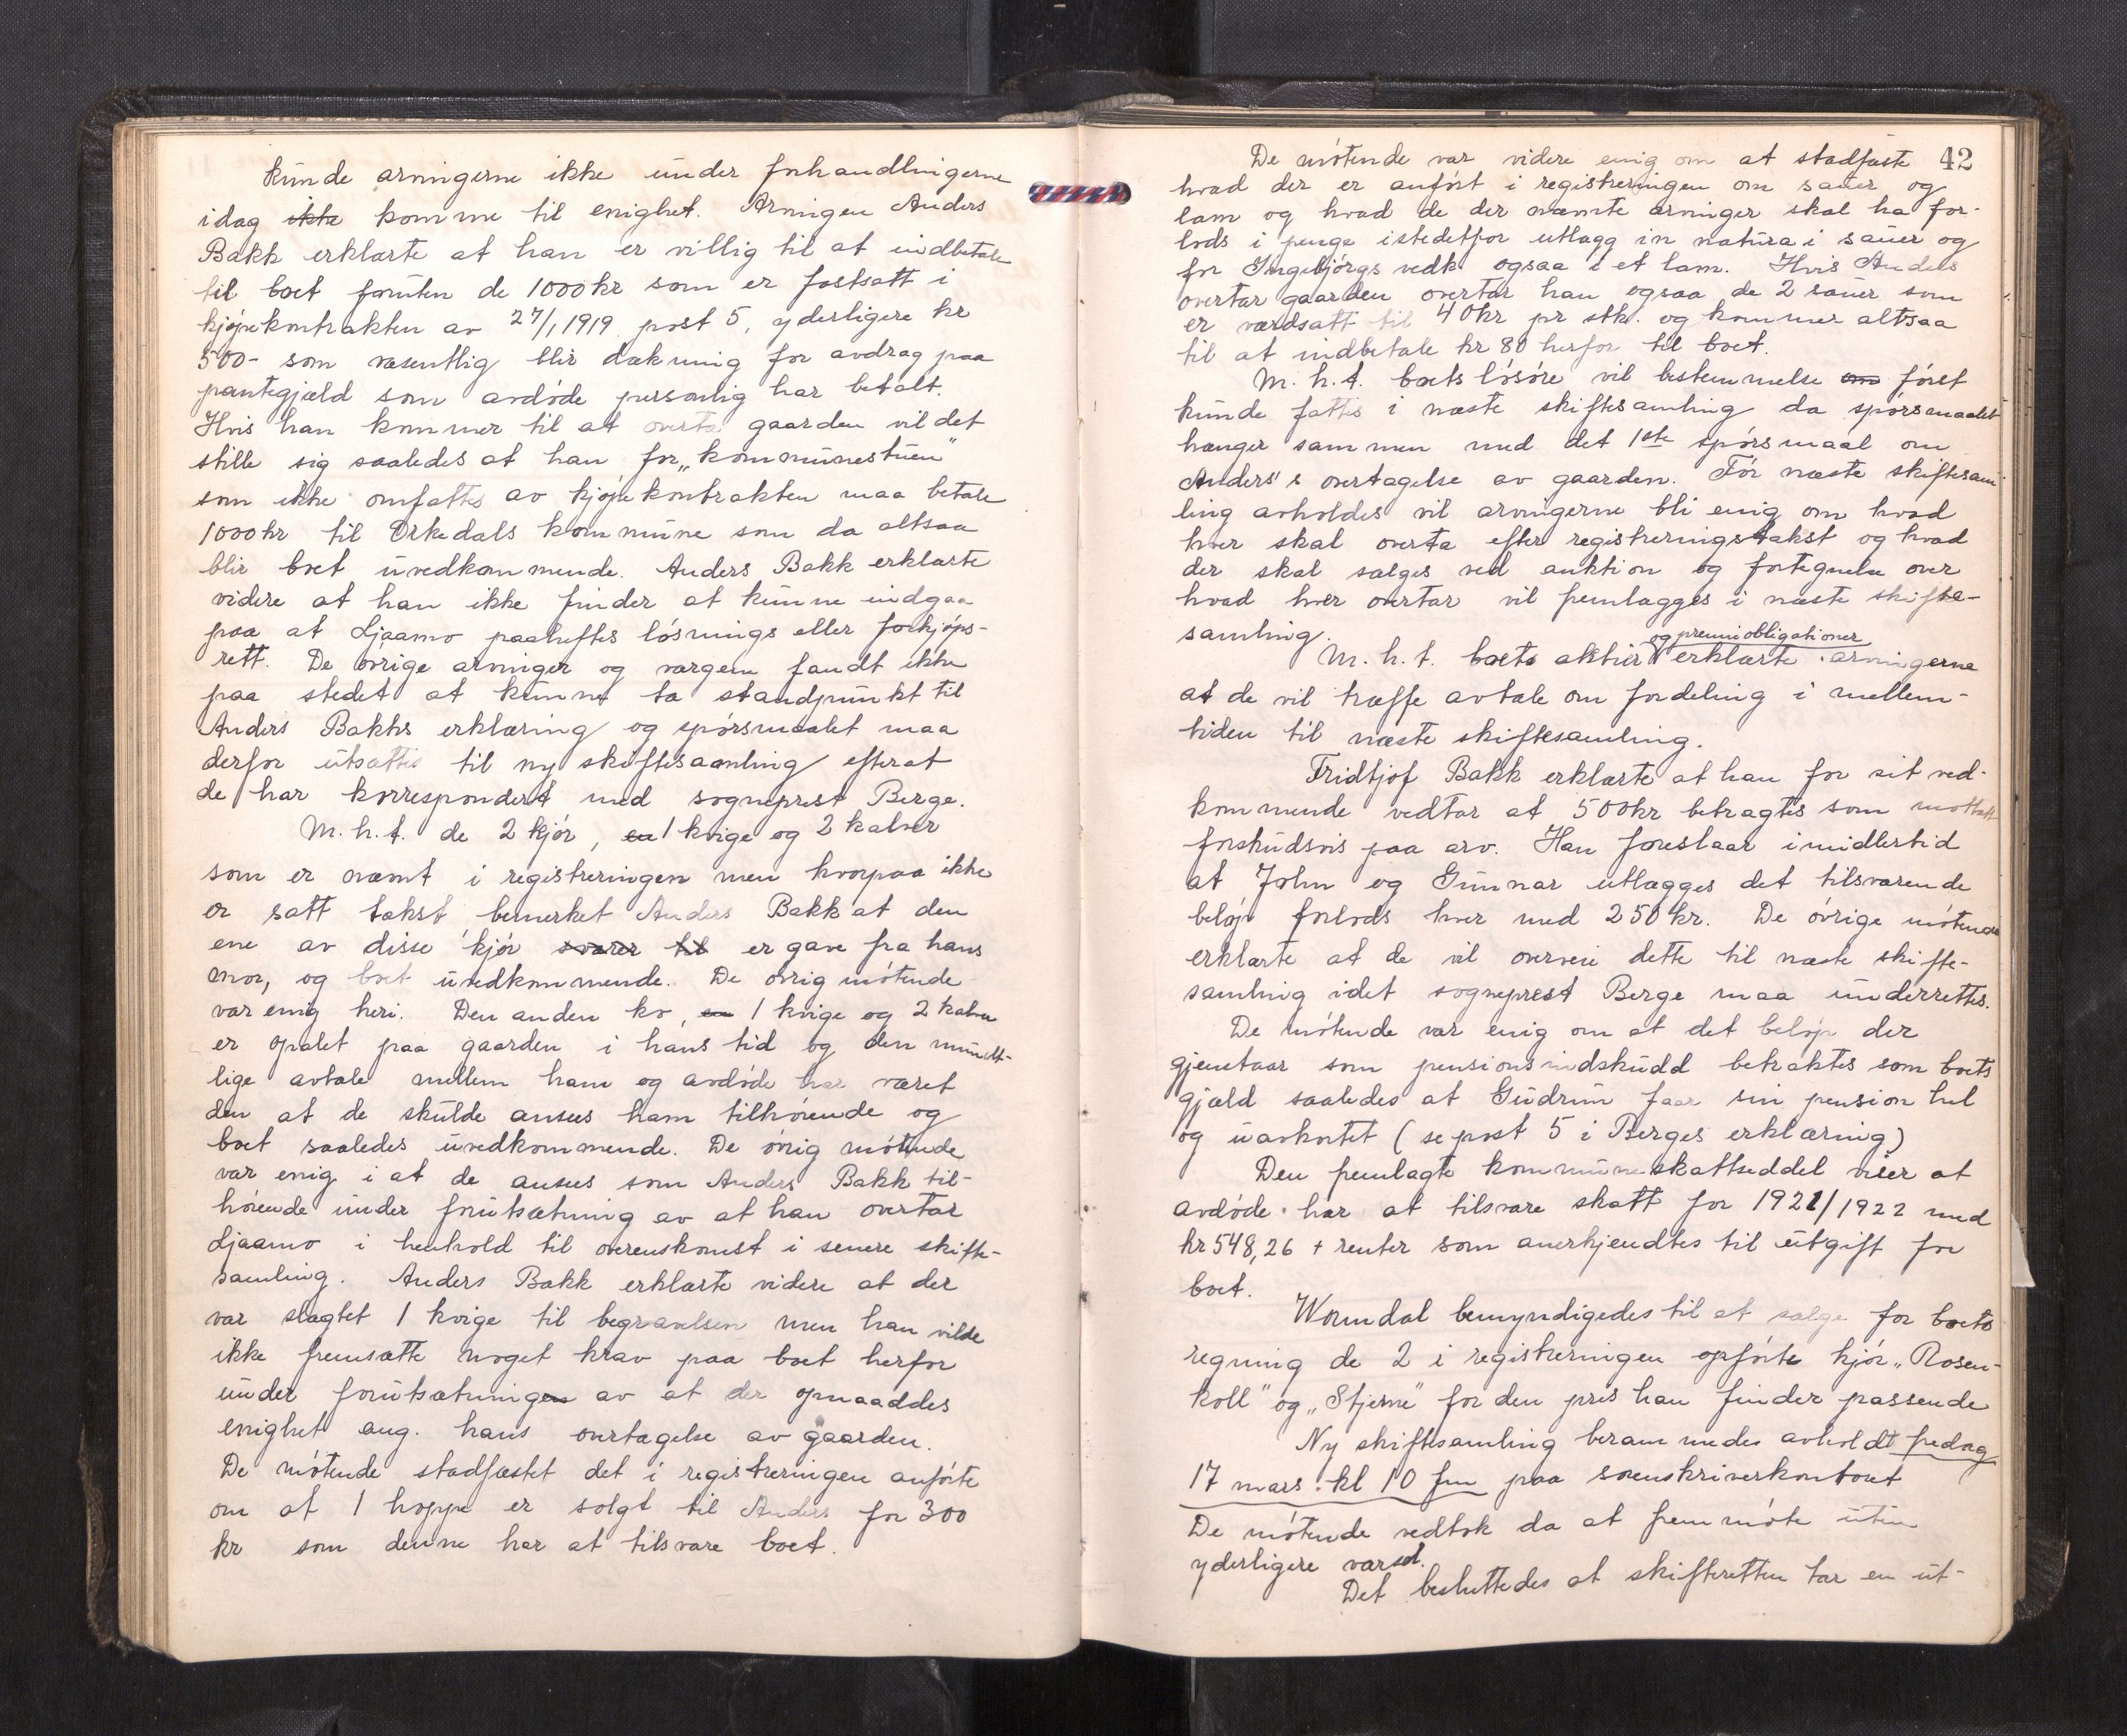 kunde arvingerne ikke under forhandlingerne
idag ikke komme til enighet. Arvingen Anders
Bakk erklærte at han er villig til at indbetale
til boet foruten de 1000 kr som er fastsatt i
kjøpekontrakten av 27/1 1919 post 5, yderligere kr
500- som væsentlig blir dækning for avdrag paa
pantegjæld som avdøde personlig har betalt.
Hvis han kommer til at overta gaarden vil det
stille sig saaledes at han for „kommunestuen"
som ikke omfattes av kjøpekontrakten maa betale
1000 kr til Orkedals kommune som da altsaa
blir boet uvedkommende. Anders Bakk erklærte
videre at han ikke finder at kunne indgaa
paa at Ljaamo paaheftes løsnings eller forkjøps-
rett. De øvrige arvinger og værgern fandt ikke
paa stedet at kunne ta standpunkt til
Anders Bakks erklæring og spørsmaalet maa
derfor utsættes til ny skiftesamling efterat
de har korrespondert med sogneprest Berge.
M.h.t. de 2 kjør, en 1 kvige og 2 kalver
som er nævnt i registreringen men hvorpaa ikke
er satt takst bemerket Anders Bakk at den
ene av disse kjør svarer til er gave fra hans
mor, og boet uvedkommende. De øvrig møtende
var enig heri. Den anden ko, en 1 kvige og 2 kalver
er opalet paa gaarden i hans tid og den mundt-
lige avtale mellem ham og avdøde har været
den at de skulde ansees ham tilhørende og
boet saaledes uvedkommende. De øvrig møtende
var enig i at de ansees som Anders Bakk til-
hørende under forutsætning av at han overtar
Ljaamo i henhold til overenskomst i senere skifte-
samling. Anders Bakk erklærte videre at der
var slagtet 1 kvige til begravelsen men han vilde
ikke fremsætte noget krav paa boet herfor
under forutsætningen av at der opnaaddes
enighet ang. hans overtagelse av gaarden.
De møtende stadfæstet det i registreringen anførte
om at 1 hoppe er solgt til Anders for 300
kr som denne har at tilsvare boet.
42
De møtende var videre enig om at stadfæste
hvad der er anført i registreringen om sauer og
lam og hvad de der nævnte arvinger skal ha for-
lods i penge istedetfor utlægg in natura i sauer og
for Ingebjørgs vedk. ogsaa i et lam. Hvis Anders
overtar gaarden overtar han ogsaa de 2 sauer som
er værdsatt til 40 kr pr stk. og kommer altsaa
til at indbetale kr 80 herfor til boet.
M.h.t. boets løsøre vil bestemmelse om først
kunde fattes i næste skiftesamling da spørsmaalet
hænger sammen med det 1ste spørsmaal om
Anders's overtagelse av gaarden. Før næste skiftesam-
ling avholdes vil arvingerne bli enig om hvad
hver skal overta efter registreringstakst og hvad
der skal sælges ved auktion og fortegnelse over
hvad hver overtar vil fremlægges i næste skifte-
samling.
og premieobligationer
M.h.t. boets aktier erklærte arvingerne
at de vil træffe avtale om fordeling i mellem-
tiden til næste skiftesamling.
Fridtjof Bakk erklærte at han for sit ved-
kommende vedtar at 500 kr betragtes som mottatt
forskudsvis paa arv. Han foreslaar imidlertid
at John og Gunnar utlægges det tilsvarende
beløp forlods hver med 250 kr. De øvrige møtende
erklærte at de vil overveie dette til næste skifte-
samling idet sogneprest Berge maa underrettes.
De møtende var enig om at det beløp der
gjenstaar som pensionsindskudd betraktes som boets
gjæld saaledes at Gudrun faar sin pension hel
og uavkortet (se post 5 i Berges erklæring)
Den fremlagte kommuneskattseddel viser at
avdøde har at tilsvare skatt for 1921/1922 med
kr 548,26 + renter som anerkjendtes til utgift for
boet.
Wormdal bemyndigedes til at sælge for boets
regning de 2 i registreringen opførte kjør „Rosen-
koll" og „Stjerne" for den pris han finder passende
Ny skiftesamling berammedes avholdt fredag
17 mars kl 10 fm paa sorenskriverkontoret
De møtende vedtok da at fremmøte uten
yderligere varsel.
Det besluttedes at skifteretten tar en ut-